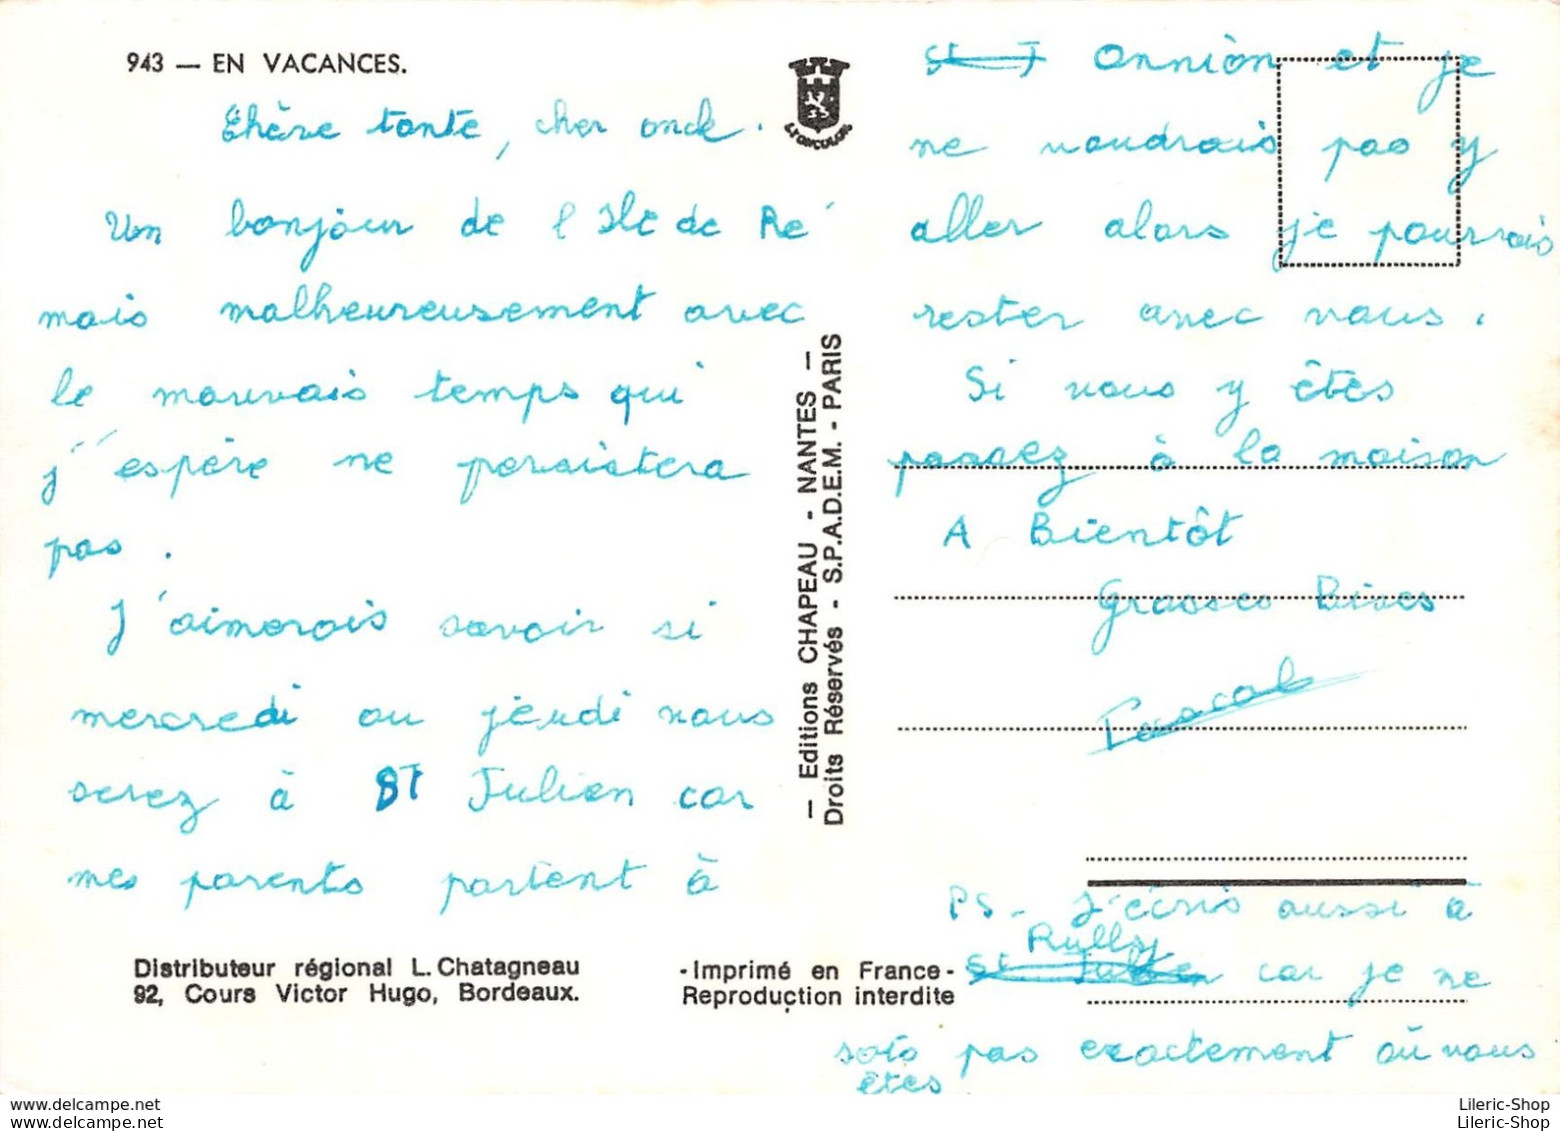 943 — EN VACANCES.
Chère tante, cher oncle.
Un bonjour de l'Ile de Ré
mais malheureusement avec
le mauvais temps qui
j'espère ne persistera
pas.
J'aimerais savoir si
mercredi ou jeudi vous
serez à ST Julien car
mes parents partent à
Distributeur régional L. Chatagneau
92, Cours Victor Hugo, Bordeaux.
LYONCOLOR
— Editions CHAPEAU - NANTES —
Droits Réservés - S.P.A.D.E.M. - PARIS
St J Onnion et je
ne voudrais pas y
aller alors je pourrais
rester avec vous.
Si vous y êtes
passez à la maison
A Bientôt
Grosses Bises
Pascal
PS - J'écris aussi à
Rully
St Julien car je ne
sais pas exactement où vous
êtes
-Imprimé en France-
Reproduction interdite
Lileric-Shop
Lileric-Shop
Lileric-Shop
Lileric-Shop